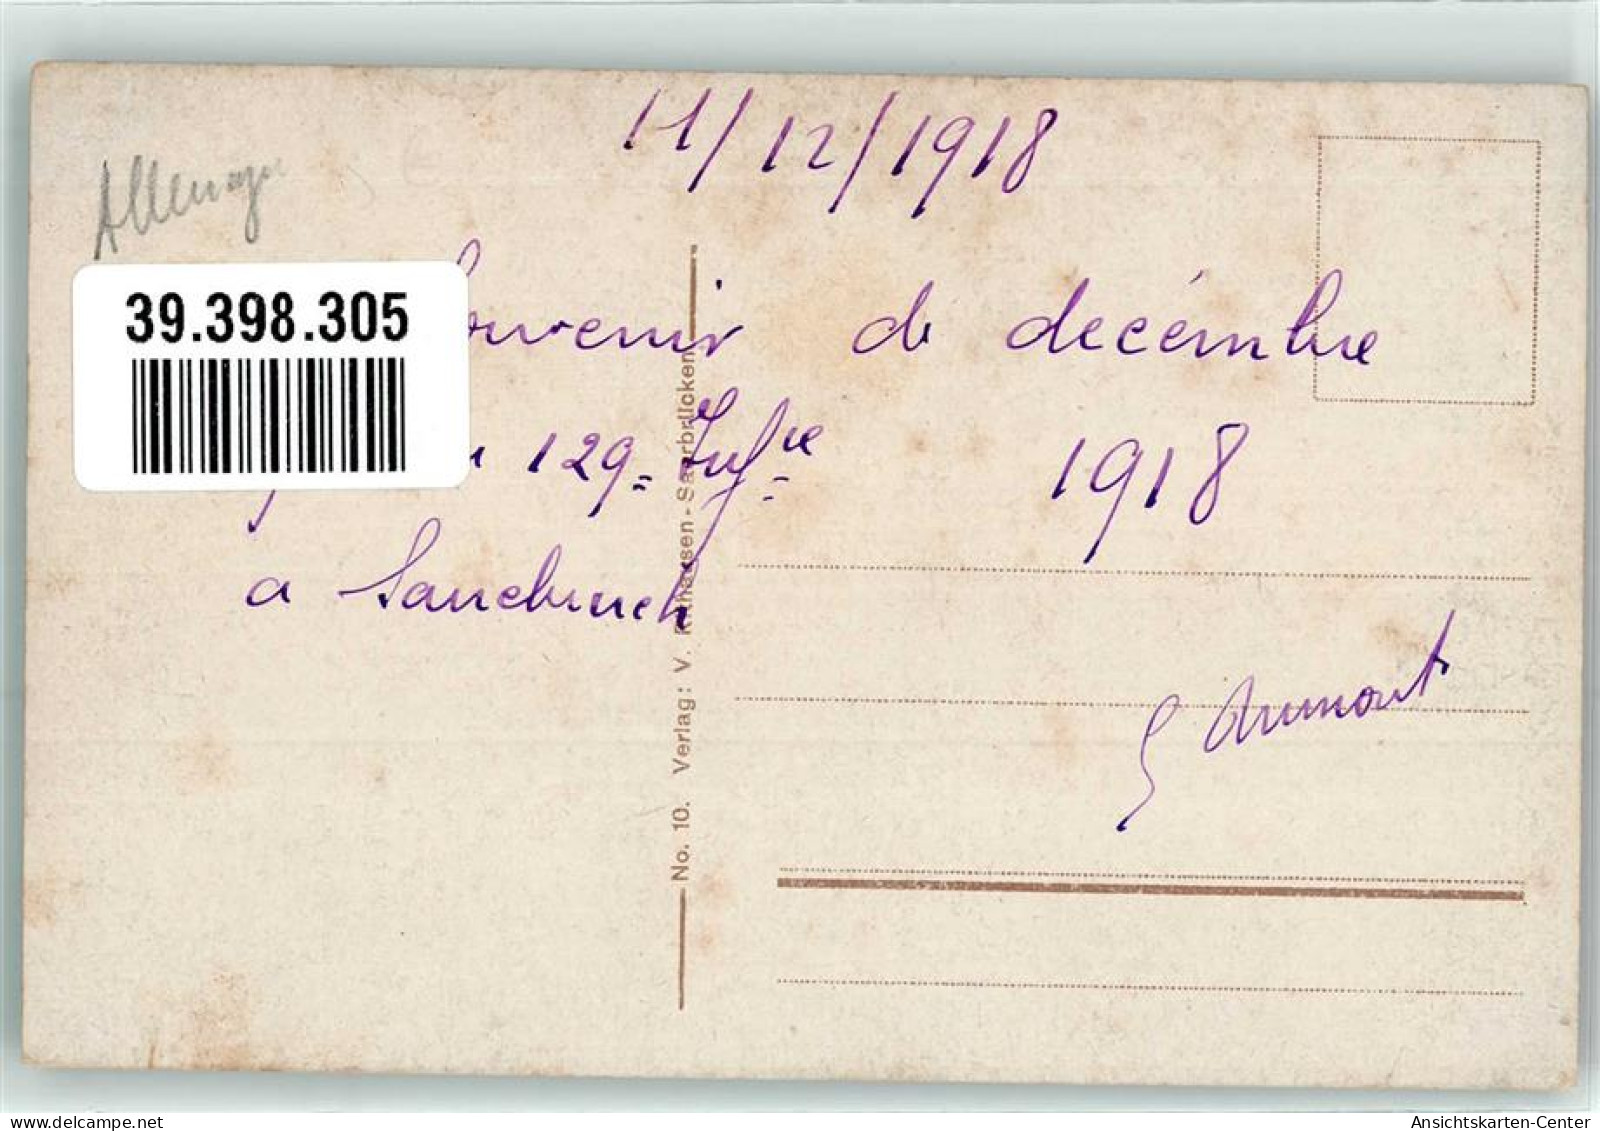 11/12/1918
Allemagne
39.398.305
Souvenir de decémbre
129= Infie 1918
a Sarrebruck
G Dumont
No. 10. Verlag: V. Saarbrücken
delcampe.net
Ansichtskarten-Center